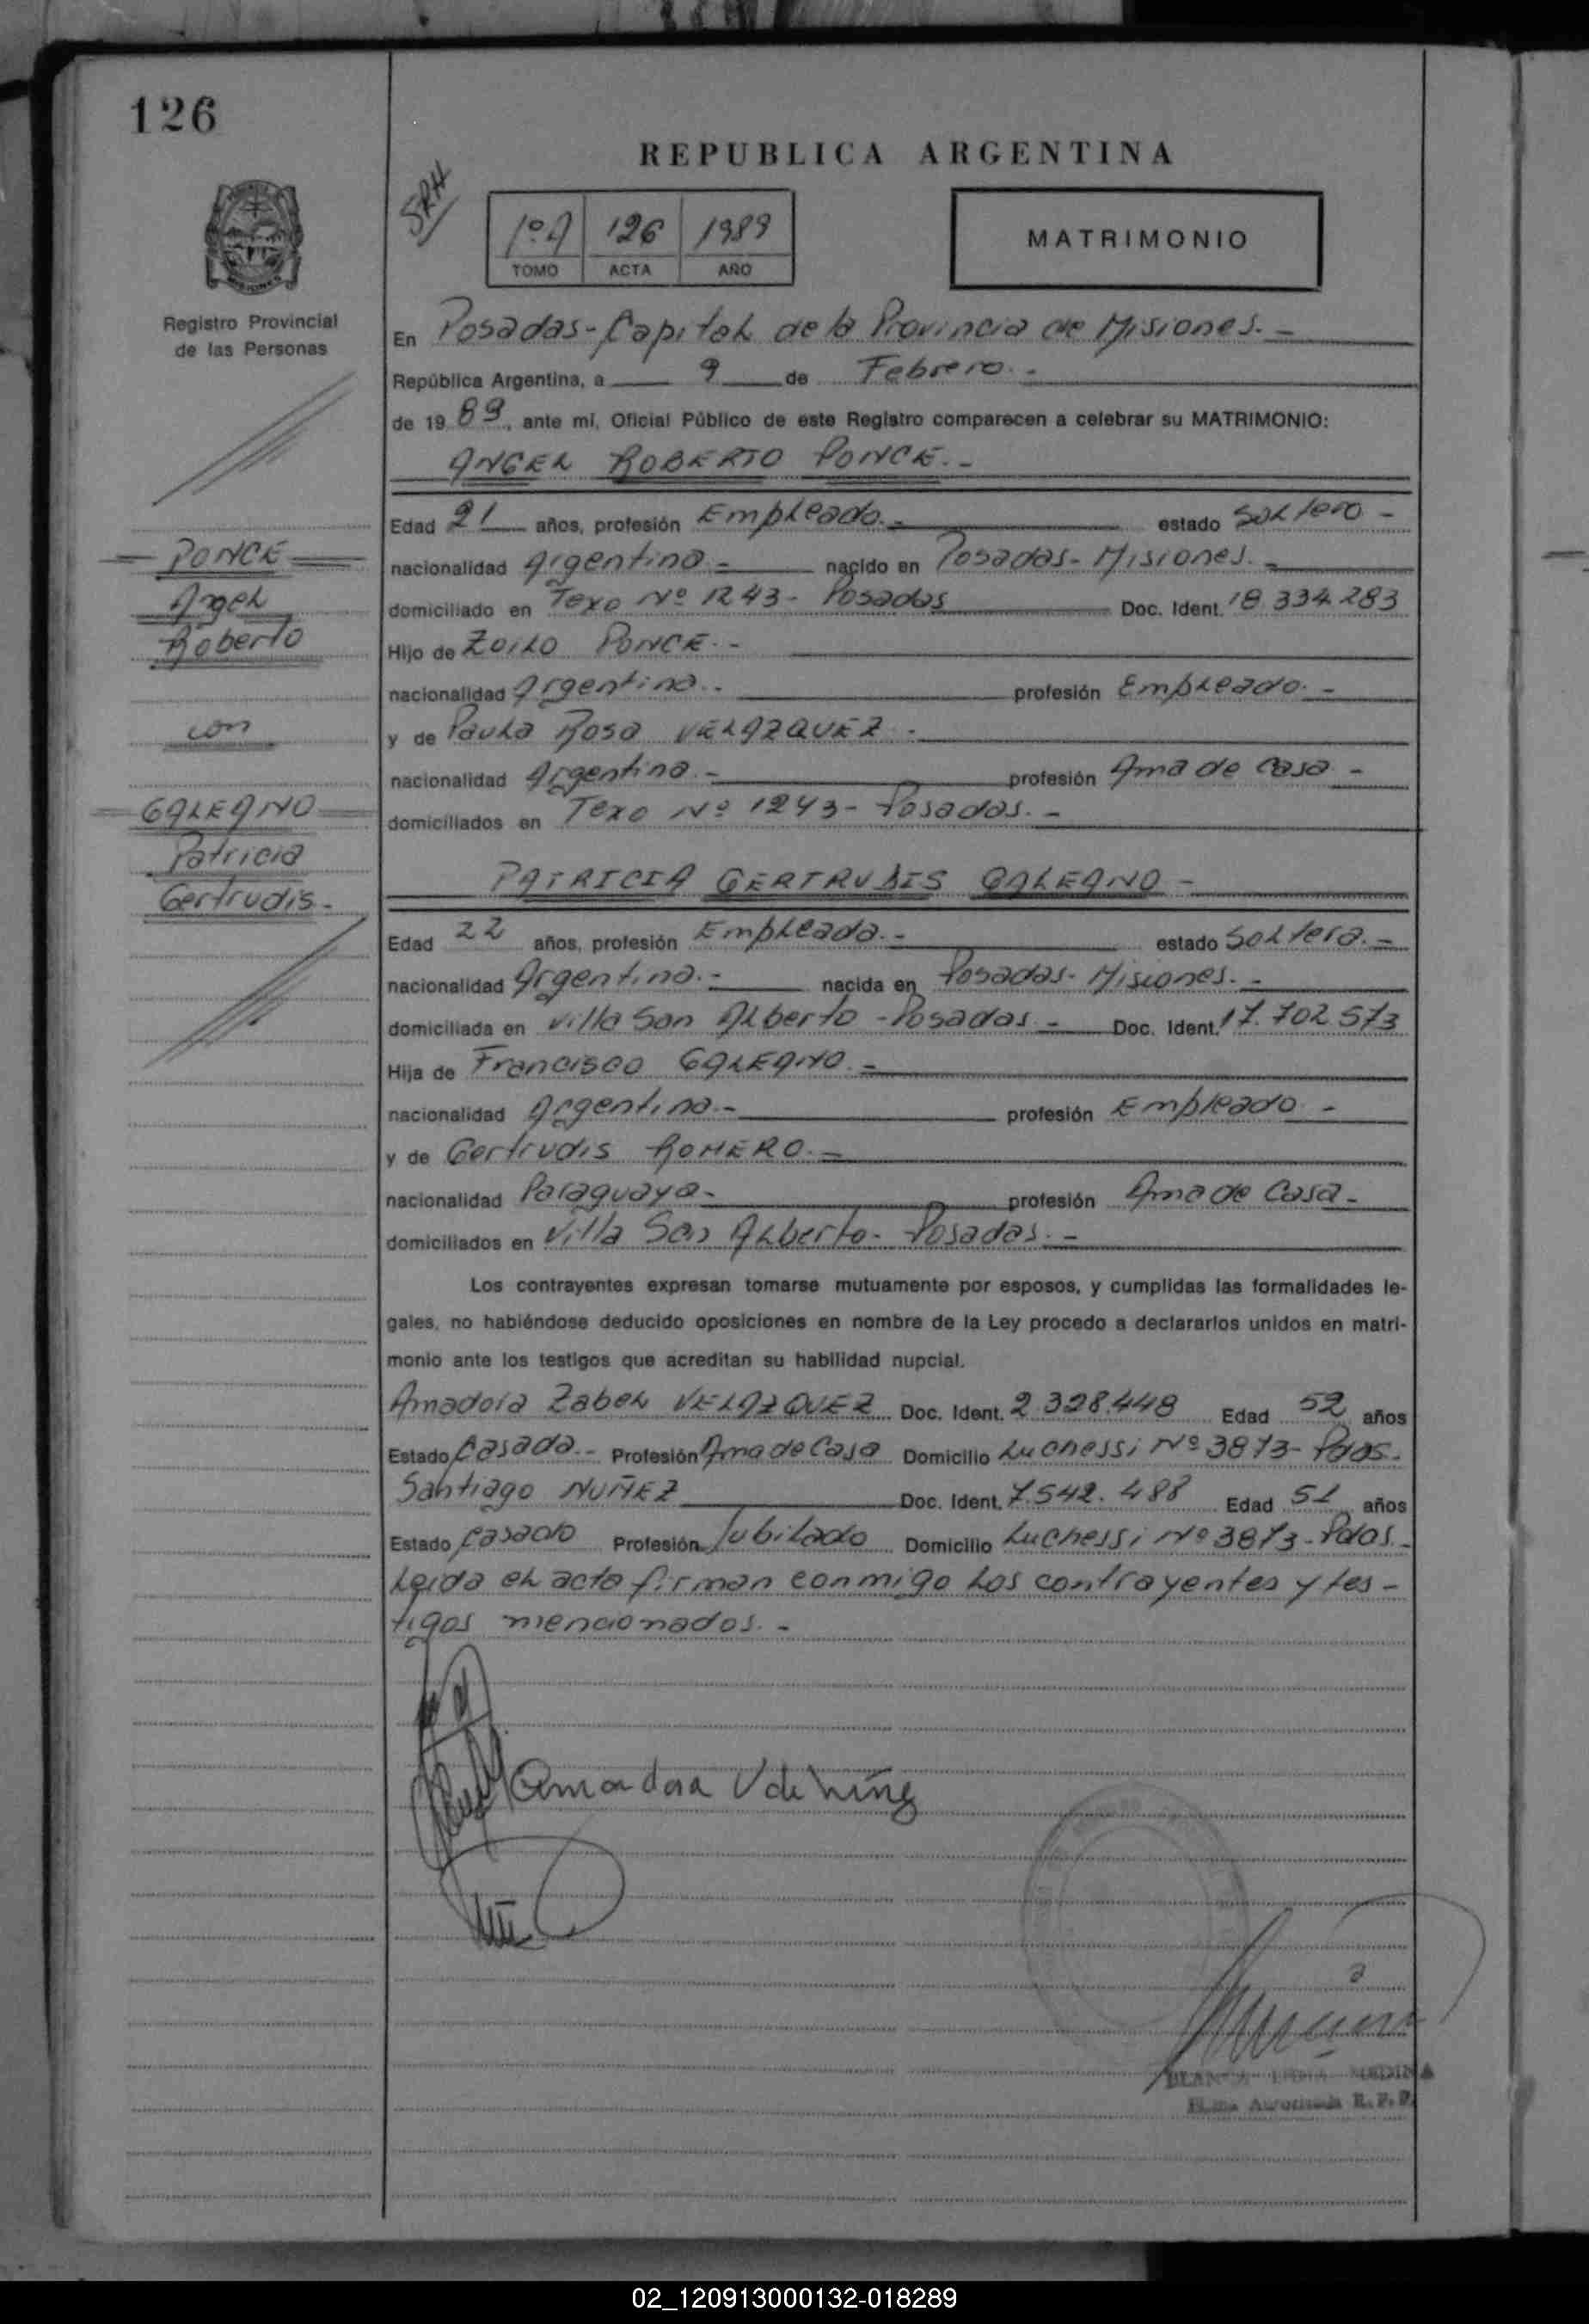 126
REPUBLICA ARGENTINA
SRH
1º A 126 1989
TOMO ACTA AÑO
MATRIMONIO
MISIONES
Registro Provincial
de las Personas
En Posadas - Capital de la Provincia de Misiones. -
República Argentina, a 9 de Febrero. -
de 19 89, ante mí, Oficial Público de este Registro comparecen a celebrar su MATRIMONIO:
ANGEL ROBERTO PONCE. -
Edad 21 años, profesión Empleado. - estado Soltero -
PONCE
nacionalidad Argentina - nacido en Posadas - Misiones. -
Angel
domiciliado en Texo Nº 1243 - Posadas Doc. Ident. 18.334.283
Roberto
Hijo de ZOILO PONCE. -
nacionalidad Argentina. - profesión Empleado. -
con
y de Paula Rosa VELAZQUEZ. -
nacionalidad Argentina. - profesión Ama de casa -
GALEANO
domiciliados en Texo Nº 1243 - Posadas. -
Patricia
PATRICIA GERTRUDIS GALEANO -
Gertrudis. -
Edad 22 años, profesión Empleada. - estado Soltera. -
nacionalidad Argentina. - nacida en Posadas - Misiones. -
domiciliada en Villa San Alberto - Posadas. - Doc. Ident. 17.702.573
Hija de Francisco GALEANO. -
nacionalidad Argentina. - profesión Empleado. -
y de Gertrudis ROMERO. -
nacionalidad Paraguaya. - profesión Ama de Casa -
domiciliados en Villa San Alberto - Posadas. -
Los contrayentes expresan tomarse mutuamente por esposos, y cumplidas las formalidades le-
gales, no habiéndose deducido oposiciones en nombre de la Ley procedo a declararlos unidos en matri-
monio ante los testigos que acreditan su habilidad nupcial.
Amadora Zabel VELAZQUEZ Doc. Ident. 2.328.448 Edad 52 años
Estado Casada. - Profesión Ama de Casa Domicilio Luchessi Nº 3873 - Pdas. -
Santiago NUÑEZ Doc. Ident. 7.542.488 Edad 51 años
Estado Casado Profesión Jubilado Domicilio Luchessi Nº 3873 - Pdas. -
Leída el acta firman conmigo los contrayentes y tes-
tigos mencionados. -
Amadora V de
MEDINA
Autorizada R. P. P.
02_120913000132-018289